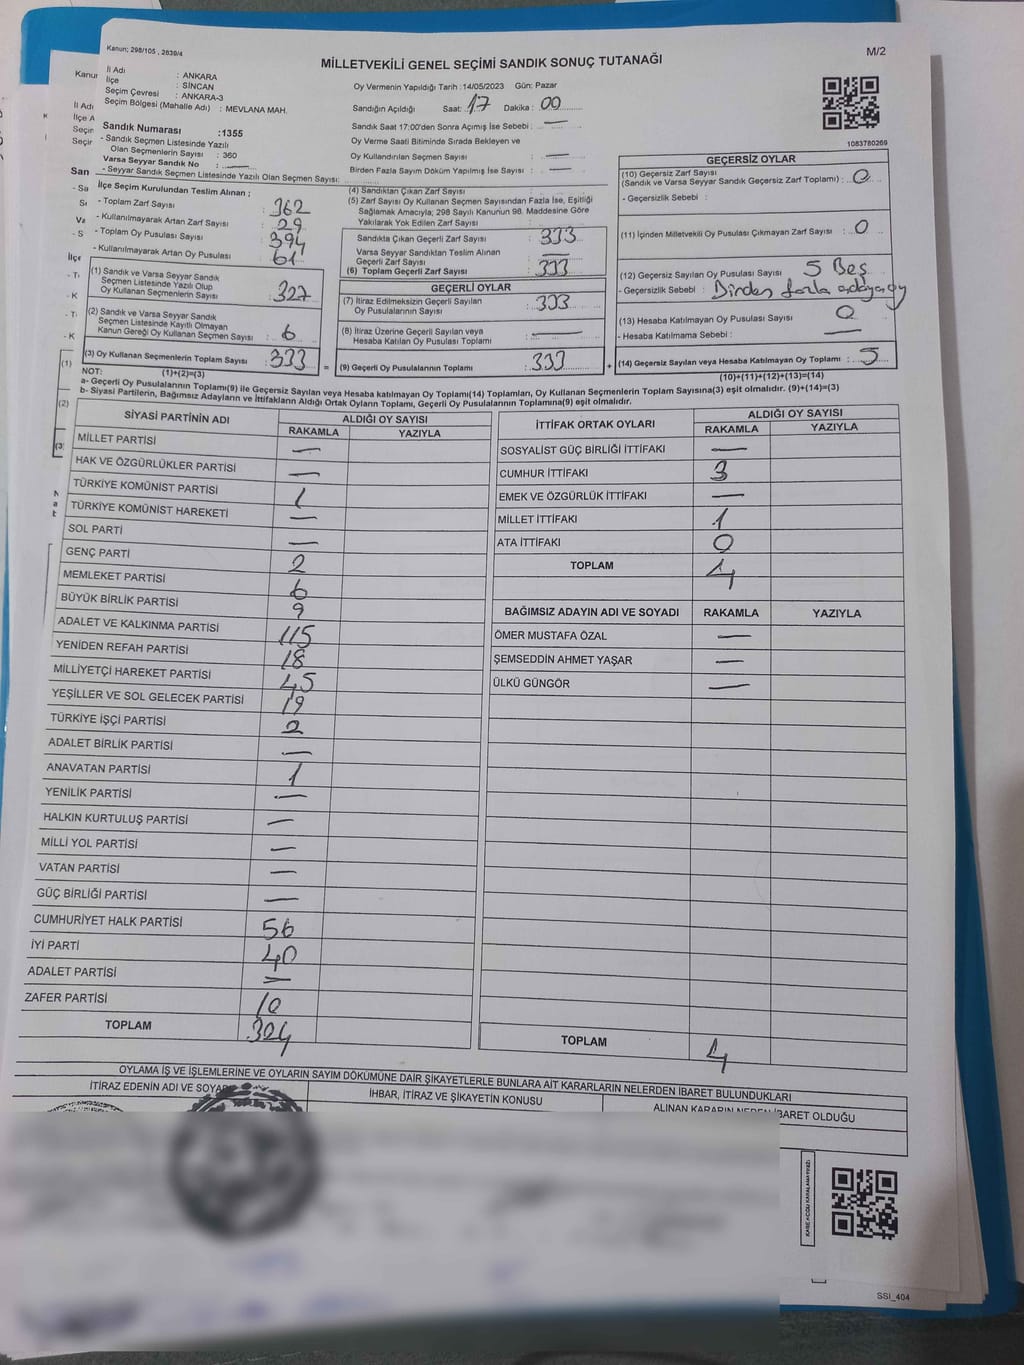 Kanun; 298/105 , 2839/4
M/2
MİLLETVEKİLİ GENEL SEÇİMİ SANDIK SONUÇ TUTANAĞI
İl Adı : ANKARA
İlçe : SİNCAN
Seçim Çevresi : ANKARA-3
Seçim Bölgesi (Mahalle Adı) : MEVLANA MAH.
Sandık Numarası :1355
- Sandık Seçmen Listesinde Yazılı
Olan Seçmenlerin Sayısı : 360
Varsa Seyyar Sandık No :
- Seyyar Sandık Seçmen Listesinde Yazılı Olan Seçmen Sayısı:
Oy Vermenin Yapıldığı Tarih :14/05/2023 Gün: Pazar
Sandığın Açıldığı Saat: 17 Dakika : 00
Sandık Saat 17:00'den Sonra Açımış İse Sebebi : —
Oy Verme Saati Bitiminde Sırada Bekleyen ve
Oy Kullandırılan Seçmen Sayısı : —
Birden Fazla Sayım Döküm Yapılmış İse Sayısı : —
1083780269
İlçe Seçim Kurulundan Teslim Alınan ;
- Toplam Zarf Sayısı : 362
- Kullanılmayarak Artan Zarf Sayısı : 29
- Toplam Oy Pusulası Sayısı : 394
- Kullanılmayarak Artan Oy Pusulası : 61
(1) Sandık ve Varsa Seyyar Sandık
Seçmen Listesinde Yazılı Olup
Oy Kullanan Seçmenlerin Sayısı : 327
(2) Sandık ve Varsa Seyyar Sandık
Seçmen Listesinde Kayıtlı Olmayan
Kanun Gereği Oy Kullanan Seçmen Sayısı : 6
(3) Oy Kullanan Seçmenlerin Toplam Sayısı : 333
(4) Sandıktan Çıkan Zarf Sayısı :
(5) Zarf Sayısı Oy Kullanan Seçmen Sayısından Fazla İse, Eşitliği
Sağlamak Amacıyla; 298 Sayılı Kanunun 98. Maddesine Göre
Yakılarak Yok Edilen Zarf Sayısı :
Sandıkta Çıkan Geçerli Zarf Sayısı : 333
Varsa Seyyar Sandıktan Teslim Alınan
Geçerli Zarf Sayısı : —
(6) Toplam Geçerli Zarf Sayısı : 333
GEÇERLİ OYLAR
(7) İtiraz Edilmeksizin Geçerli Sayılan
Oy Pusulalarının Sayısı : 333
(8) İtiraz Üzerine Geçerli Sayılan veya
Hesaba Katılan Oy Pusulası Toplamı : —
= (9) Geçerli Oy Pusulalarının Toplamı : 333 +
GEÇERSİZ OYLAR
(10) Geçersiz Zarf Sayısı
(Sandık ve Varsa Seyyar Sandık Geçersiz Zarf Toplamı) : 0
- Geçersizlik Sebebi :
(11) İçinden Milletvekili Oy Pusulası Çıkmayan Zarf Sayısı : 0
(12) Geçersiz Sayılan Oy Pusulası Sayısı : 5 Beş
- Geçersizlik Sebebi : Birden fazla adaya oy
(13) Hesaba Katılmayan Oy Pusulası Sayısı : 0
- Hesaba Katılmama Sebebi : —
(14) Geçersiz Sayılan veya Hesaba Katılmayan Oy Toplamı : 5
NOT: (1)+(2)=(3)
(10)+(11)+(12)+(13)=(14)
a- Geçerli Oy Pusulalarının Toplamı(9) ile Geçersiz Sayılan veya Hesaba katılmayan Oy Toplamı(14) Toplamları, Oy Kullanan Seçmenlerin Toplam Sayısına(3) eşit olmalıdır. (9)+(14)=(3)
b- Siyasi Partilerin, Bağımsız Adayların ve İttifakların Aldığı Ortak Oyların Toplamı, Geçerli Oy Pusulalarının Toplamına(9) eşit olmalıdır.
SİYASİ PARTİNİN ADI ALDIĞI OY SAYISI
RAKAMLA YAZIYLA
MİLLET PARTİSİ —
HAK VE ÖZGÜRLÜKLER PARTİSİ —
TÜRKİYE KOMÜNİST PARTİSİ 1
TÜRKİYE KOMÜNİST HAREKETİ —
SOL PARTİ —
GENÇ PARTİ 2
MEMLEKET PARTİSİ 6
BÜYÜK BİRLİK PARTİSİ 9
ADALET VE KALKINMA PARTİSİ 115
YENİDEN REFAH PARTİSİ 18
MİLLİYETÇİ HAREKET PARTİSİ 45
YEŞİLLER VE SOL GELECEK PARTİSİ 19
TÜRKİYE İŞÇİ PARTİSİ 2
ADALET BİRLİK PARTİSİ —
ANAVATAN PARTİSİ 1
YENİLİK PARTİSİ —
HALKIN KURTULUŞ PARTİSİ —
MİLLİ YOL PARTİSİ —
VATAN PARTİSİ —
GÜÇ BİRLİĞİ PARTİSİ —
CUMHURİYET HALK PARTİSİ 56
İYİ PARTİ 40
ADALET PARTİSİ —
ZAFER PARTİSİ 10
TOPLAM 324
İTTİFAK ORTAK OYLARI ALDIĞI OY SAYISI
RAKAMLA YAZIYLA
SOSYALİST GÜÇ BİRLİĞİ İTTİFAKI —
CUMHUR İTTİFAKI 3
EMEK VE ÖZGÜRLÜK İTTİFAKI —
MİLLET İTTİFAKI 1
ATA İTTİFAKI 0
TOPLAM 4
BAĞIMSIZ ADAYIN ADI VE SOYADI RAKAMLA YAZIYLA
ÖMER MUSTAFA ÖZAL —
ŞEMSEDDİN AHMET YAŞAR —
ÜLKÜ GÜNGÖR —
TOPLAM 4
OYLAMA İŞ VE İŞLEMLERİNE VE OYLARIN SAYIM DÖKÜMÜNE DAİR ŞİKAYETLERLE BUNLARA AİT KARARLARIN NELERDEN İBARET BULUNDUKLARI
İTİRAZ EDENİN ADI VE SOYADI
İHBAR, İTİRAZ VE ŞİKAYETİN KONUSU
ALINAN KARARIN NEDEN İBARET OLDUĞU
SSI_404